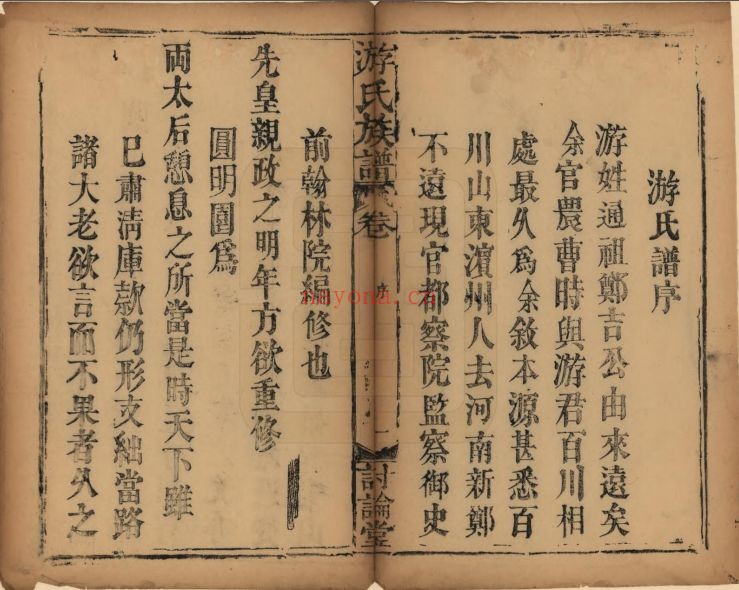 游氏譜序
游姓通祖鄭吉公由來遠矣
余官農曹時與游君百川相
處最久為余敘本源甚悉百
川山東濱州人去河南新鄭
不遠現官都察院監察御史
游氏族譜
卷
序
一
討論堂
前翰林院編修也
先皇親政之明年方欲重修
圓明園為
両太后憩息之所當是時天下雖
已肅清庫款仍形支絀當路
諸大老欲言而不果者久之